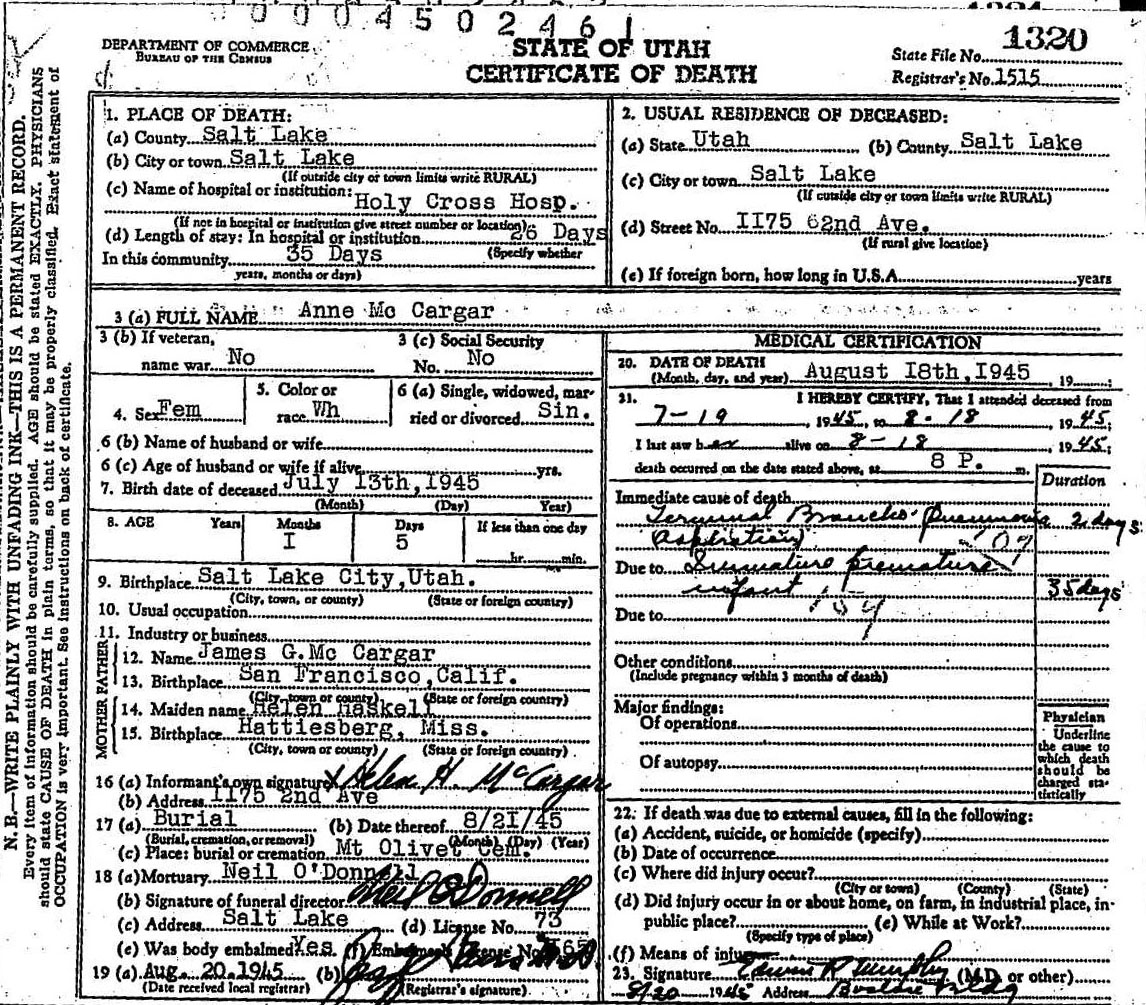 0004502461
1320
DEPARTMENT OF COMMERCE
BUREAU OF THE CENSUS
STATE OF UTAH
CERTIFICATE OF DEATH
State File No. 1320
Registrar's No. 1515
N. B.—WRITE PLAINLY WITH UNFADING INK—THIS IS A PERMANENT RECORD.
Every item of information should be carefully supplied. AGE should be stated EXACTLY. PHYSICIANS
should state CAUSE OF DEATH in plain terms, so that it may be properly classified. Exact statement of
OCCUPATION is very important. See instructions on back of certificate.
1. PLACE OF DEATH:
(a) County Salt Lake
(b) City or town Salt Lake
(If outside city or town limits write RURAL)
(c) Name of hospital or institution: Holy Cross Hosp.
(If not in hospital or institution give street number or location)
(d) Length of stay: In hospital or institution 26 Days
(Specify whether
In this community 35 Days
years, months or days)
2. USUAL RESIDENCE OF DECEASED:
(a) State Utah (b) County Salt Lake
(c) City or town Salt Lake
(If outside city or town limits write RURAL)
(d) Street No. II75 62nd Ave.
(If rural give location)
(e) If foreign born, how long in U.S.A. years
3 (a) FULL NAME Anne Mc Cargar
3 (b) If veteran, name war No
3 (c) Social Security No. No
4. Sex Fem
5. Color or race Wh
6 (a) Single, widowed, married or divorced Sin.
6 (b) Name of husband or wife
6 (c) Age of husband or wife if alive yrs.
7. Birth date of deceased July I3th,I945
(Month) (Day) Year)
8. AGE Years Months Days If less than one day
I 5 hr. min.
9. Birthplace Salt Lake City,Utah.
(City, town, or county) (State or foreign country)
10. Usual occupation
11. Industry or business
FATHER
12. Name James G.Mc Cargar
13. Birthplace San Francisco,Calif.
(City, town or county) (State or foreign country)
MOTHER
14. Maiden name Helen Haskell
15. Birthplace Hattiesberg, Miss.
(City, town or county) (State or foreign country)
16 (a) Informant's own signature X Helen H. McCargar
(b) Address II75 2nd Ave
17 (a) Burial (b) Date thereof 8/2I/45
(Burial, cremation, or removal) (Month) (Day) (Year)
(c) Place: burial or cremation Mt Olivet Cem.
18 (a) Mortuary Neil O'Donnell
(b) Signature of funeral director Neil O'Donnell
(c) Address Salt Lake (d) License No. 73
(e) Was body embalmed Yes (f) Embalmer's License No.
19 (a) Aug. 20.1945 (b)
(Date received local registrar) (Registrar's signature)
MEDICAL CERTIFICATION
20. DATE OF DEATH
(Month, day, and year) August I8th,I945, 19 ;
21. I HEREBY CERTIFY, That I attended deceased from
7-19, 1945, to 8-18, 1945;
I last saw her alive on 8-18 1945;
death occurred on the date stated above, at 8 P. m.
Duration
Immediate cause of death
Terminal Broncho-pneumonia 2 days
(Aspiration) 107
Due to Immature premature
infant 159 35 days
Due to
Other conditions
(Include pregnancy within 3 months of death)
Major findings:
Of operations
Of autopsy
Physician
Underline
the cause to
which death
should be
charged sta-
tistically
22. If death was due to external causes, fill in the following:
(a) Accident, suicide, or homicide (specify)
(b) Date of occurrence
(c) Where did injury occur?
(City or town) (County) (State)
(d) Did injury occur in or about home, on farm, in industrial place, in-
public place? (e) While at Work?
(Specify type of place)
(f) Means of injury
23. Signature Edwin R Murphy (M.D. or other)
8/20 1945 Address Boston Bldg